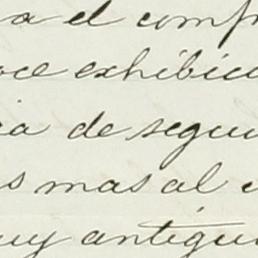 a el comp
oce exhibici
ia de segui
s mas al
uy antigu